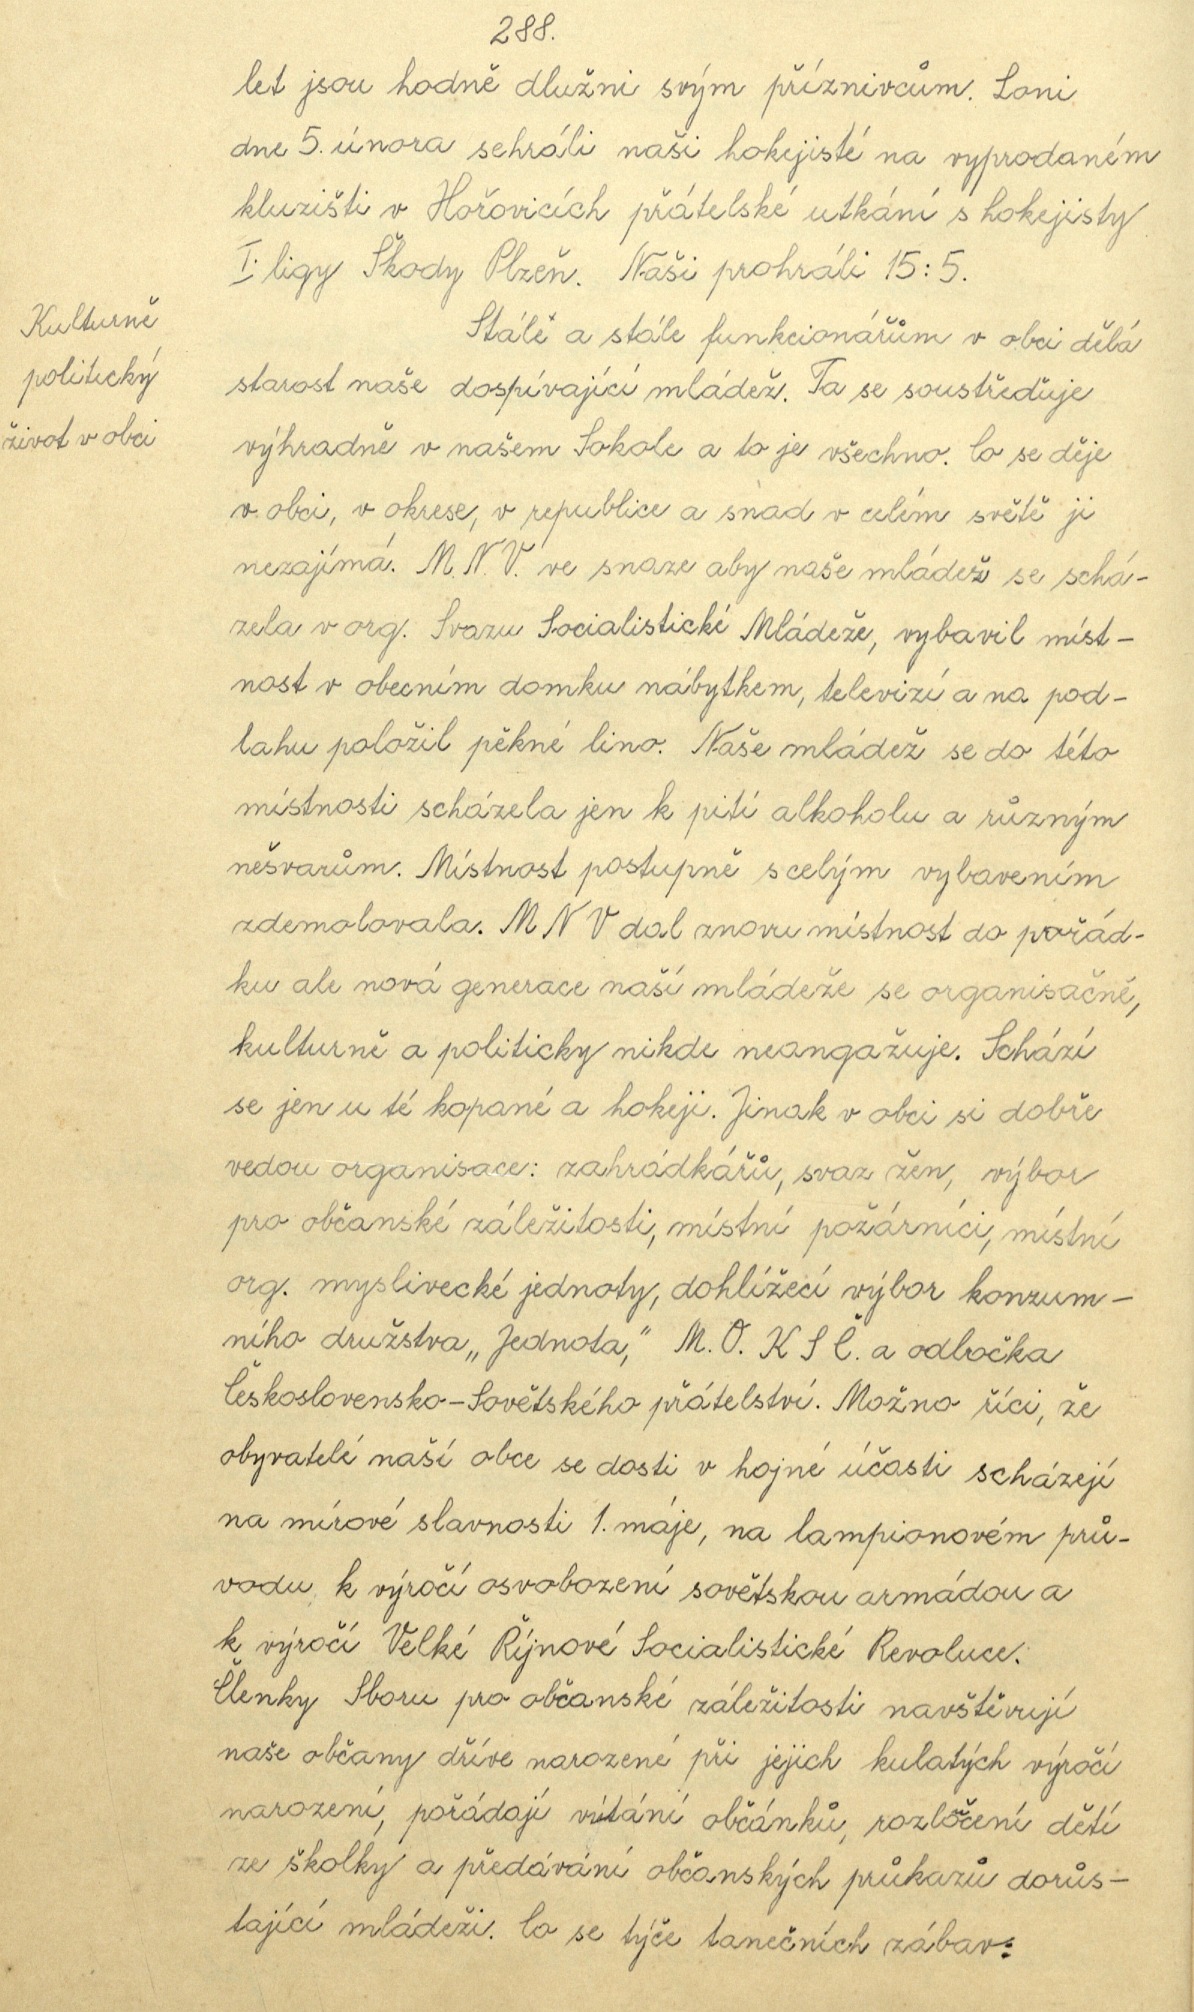 288.
let jsou hodně dlužni svým příznivcům. Loni
dne 5. února sehráli naši hokejisté na vyprodaném
kluzišti v Hořovicích přátelské utkání s hokejisty
I. ligy Škody Plzeň. Naši prohráli 15:5.
Kulturně
politický
život v obci
Stálě a stále funkcionářům v obci dělá
starost naše dospívající mládež. Ta se soustřeďuje
výhradně v našem Sokole a to je všechno. Co se děje
v obci, v okrese, v republice a snad v celém světě ji
nezajímá. M.N.V. ve snaze aby naše mládež se schá-
zela v org. Svazu Socialistické Mládeže, vybavil míst-
nost v obecním domku nábytkem, televizí a na pod-
lahu položil pěkné lino. Naše mládež se do této
místnosti scházela jen k pití alkoholu a různým
nešvarům. Místnost postupně s celým vybavením
zdemolovala. M N V dal znovu místnost do pořád-
ku ale nová generace naší mládeže se organisačně,
kulturně a politicky nikde neangažuje. Schází
se jen u té kopané a hokeji. Jinak v obci si dobře
vedou organisace: zahrádkářů, svaz žen, výbor
pro občanské záležitosti, místní požárníci, místní
org. myslivecké jednoty, dohlížecí výbor konzum-
ního družstva „Jednota," M.O. K S Č. a odbočka
Československo-Sovětského přátelství. Možno říci, že
obyvatelé naší obce se dosti v hojné účasti scházejí
na mírové slavnosti 1. máje, na lampionovém prů-
vodu k výročí osvobození sovětskou armádou a
k výročí Velké Říjnové Socialistické Revoluce.
Členky Sboru pro občanské záležitosti navštěvují
naše občany dříve narozené při jejich kulatých výročí
narození, pořádají vítání občánků, rozločení dětí
ze školky a předávání občanských průkazů dorůs-
tající mládeži. Co se týče tanečních zábav: